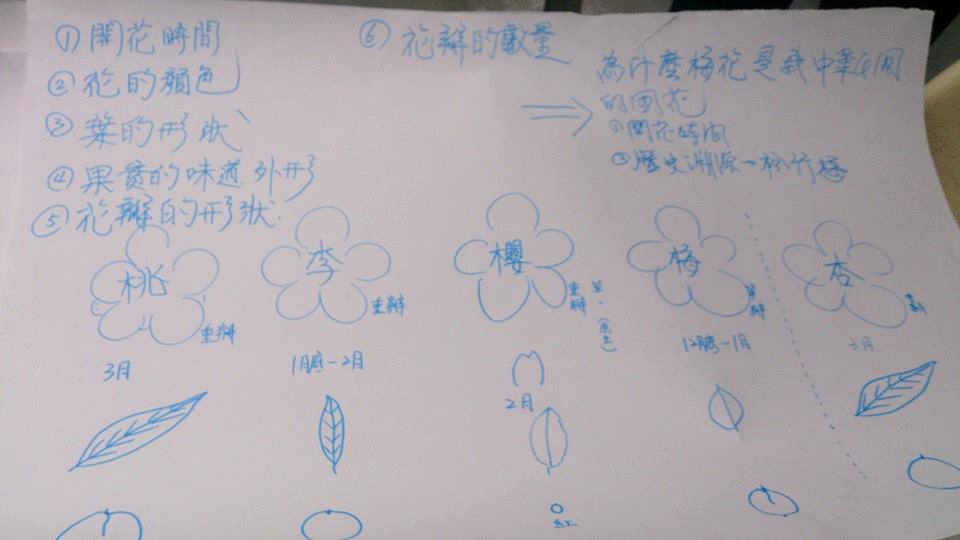 ① 開花時間
② 花的顏色
③ 葉的形狀
④ 果實的味道、外形
⑤ 花瓣的形狀
⑥ 花瓣的數量
為什麼梅花是我中華民國
的國花
① 開花時間
② 歷史淵源-松竹梅
桃
重瓣
3月
李
重瓣
1月底-2月
櫻
重瓣
2月
紅
梅
單瓣
12月底-1月
杏
3月